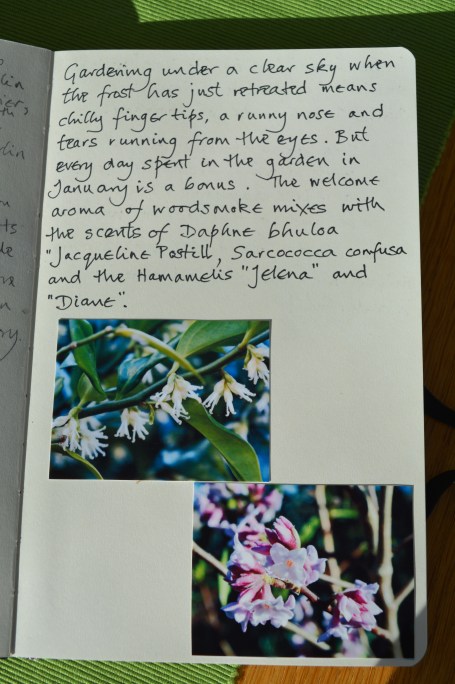 Gardening under a clear sky when
the frost has just retreated means
chilly finger tips, a runny nose and
tears running from the eyes. But
every day spent in the garden in
January is a bonus. The welcome
aroma of woodsmoke mixes with
the scents of Daphne bhuloa
"Jacqueline Postill, Sarcococca confusa
and the Hamamelis "Jelena" and
"Diane".